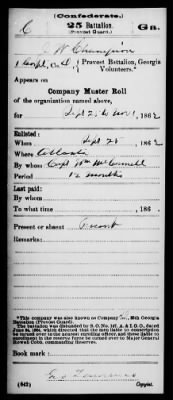 (Confederate.)
C 25 Battalion. Ga.
(Provost Guard.)
J W Champion
Corpl, Co. C, Provost Battalion, Georgia Volunteers.*
Appears on
Company Muster Roll
of the organization named above,
for Sept 25 to Nov 1, 1862
Enlisted:
When Sept 25, 1862
Where Atlanta
By whom Capt Wm
Period 12 months
Last paid:
By whom
To what time , 186 .
Present or absent Present
Remarks:
*This company was also known as Company 25th Georgia
Battalion (Provost Guard).
The battalion was disbanded by S. O. No. A. & I. G. O., dated
June 1864, which directed that the men liable to conscription
be turned over to the enrolling officers, and those liable to
enrollment in the reserve forces be turned over to Major General
Howell Cobb, commanding Reserves.
Book mark:
(642)
Copyist.